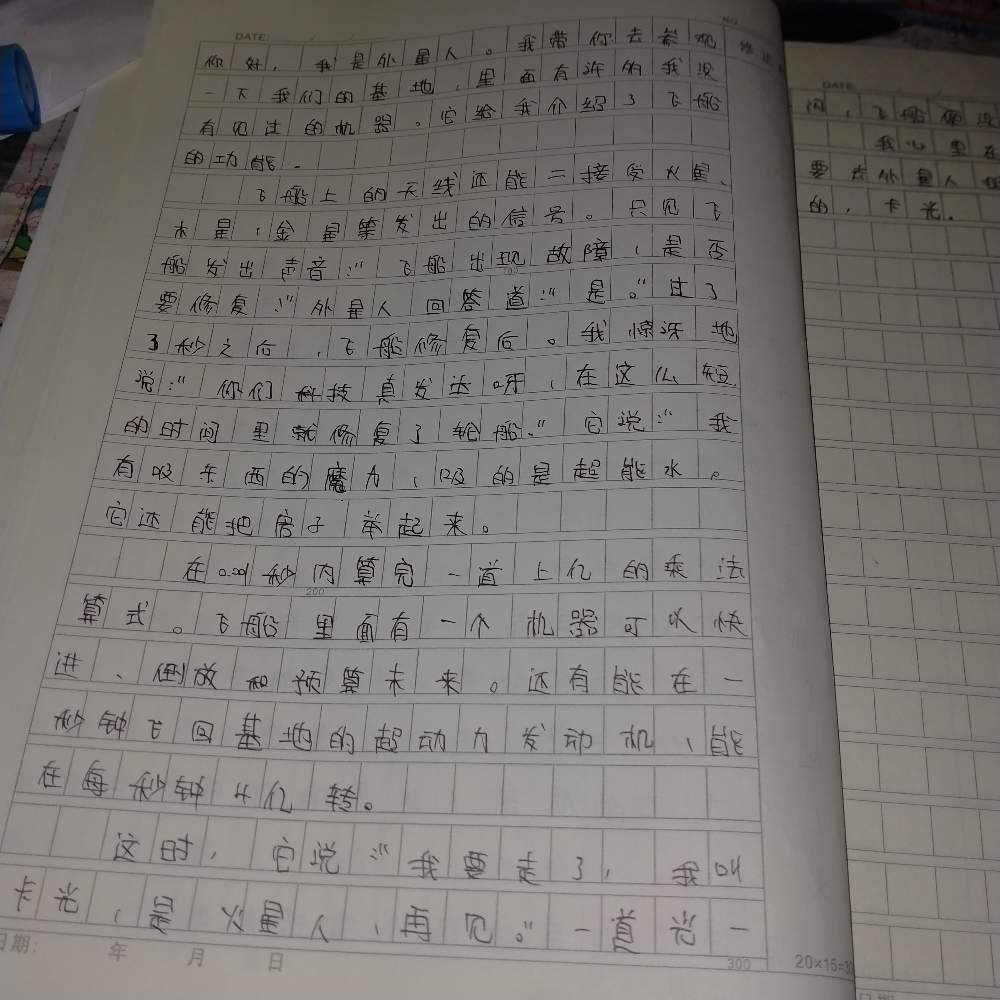 DATE
NO
你好，我是外星人。我带你去参观
一下我们的基地，里面有许的我没
有见过的机器。它给我介绍了飞船
的功能.
飞船上的天线还能二接受火星、
木星，金星等发出的信号。只见飞
船发出声音：“飞船出现故障，是否
要修复？”外星人回答道：“是。”过了
3秒之后，飞船修复后。我惊讶地
说：“你们科技真发达呀，在这么短
的时间里就修复了轮船.”它说：“我
有吸东西的魔力，吸的是起能水。
它还能把房子举起来。
在0.001秒内算完一道上亿的乘法
200
算式。飞船里面有一个机器可以快
进、倒放和预算未来。还有能在一
秒钟飞回基地的起动力发动机，能
在每秒钟4亿转。
这时，它说：“我要走了，我叫
卡光，是火星人，再见。”一道光一
日期： 年 月 日
300
20×15=30
DATE
闪，飞船便没
我心里在
要去外星人
的，卡光.